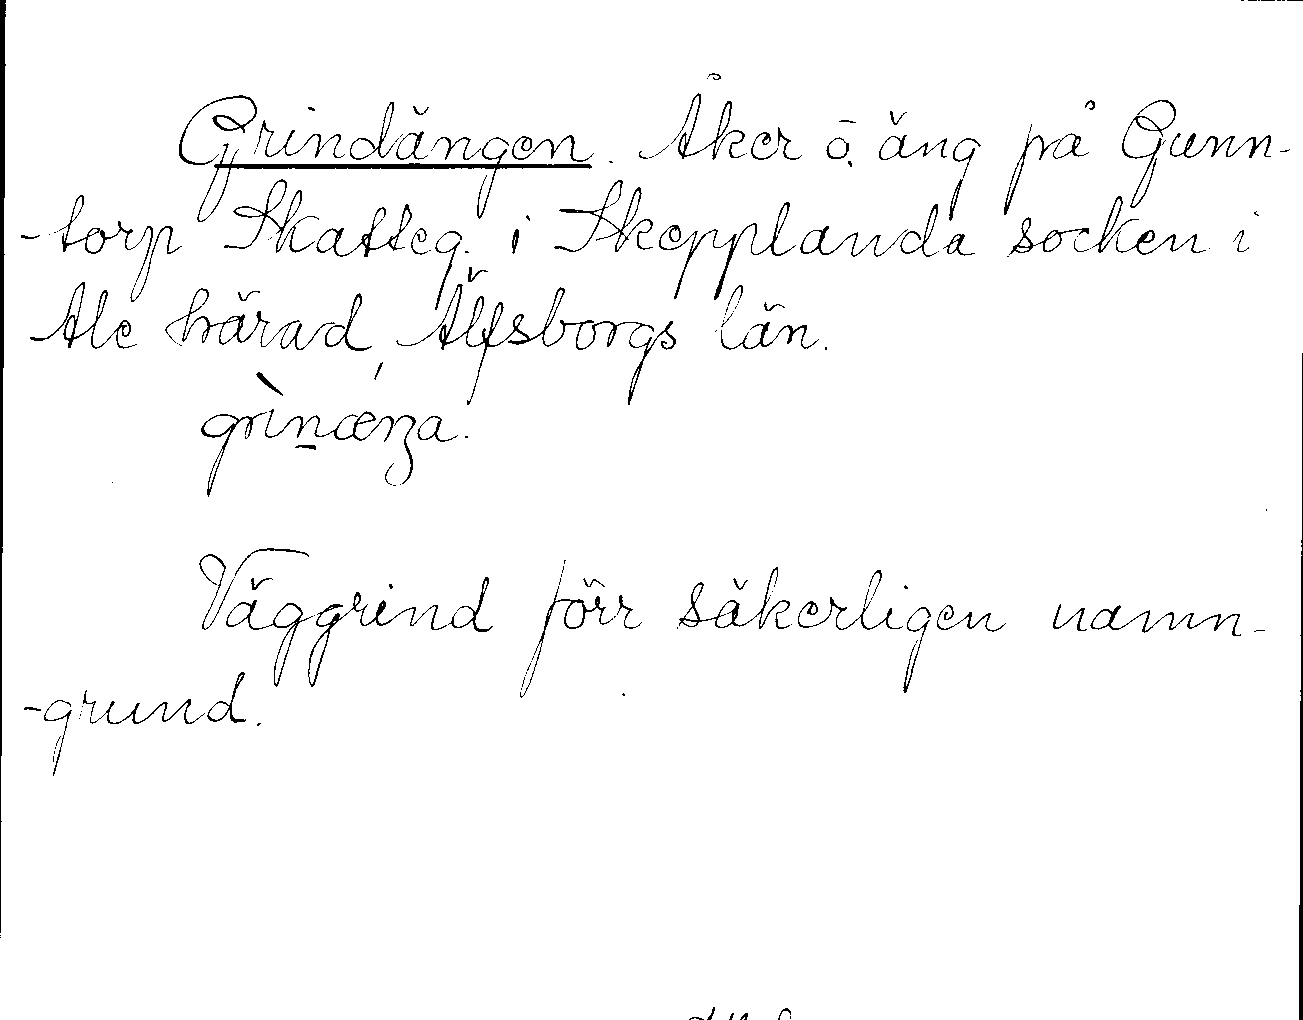 Grindängen. Åker o. äng på Gunn-
-torp Skatteg. i Skepplanda socken i
Ale härad, Älfsborgs län.
grìn̠æŋa.
Väggrind förr säkerligen namn-
-grund.